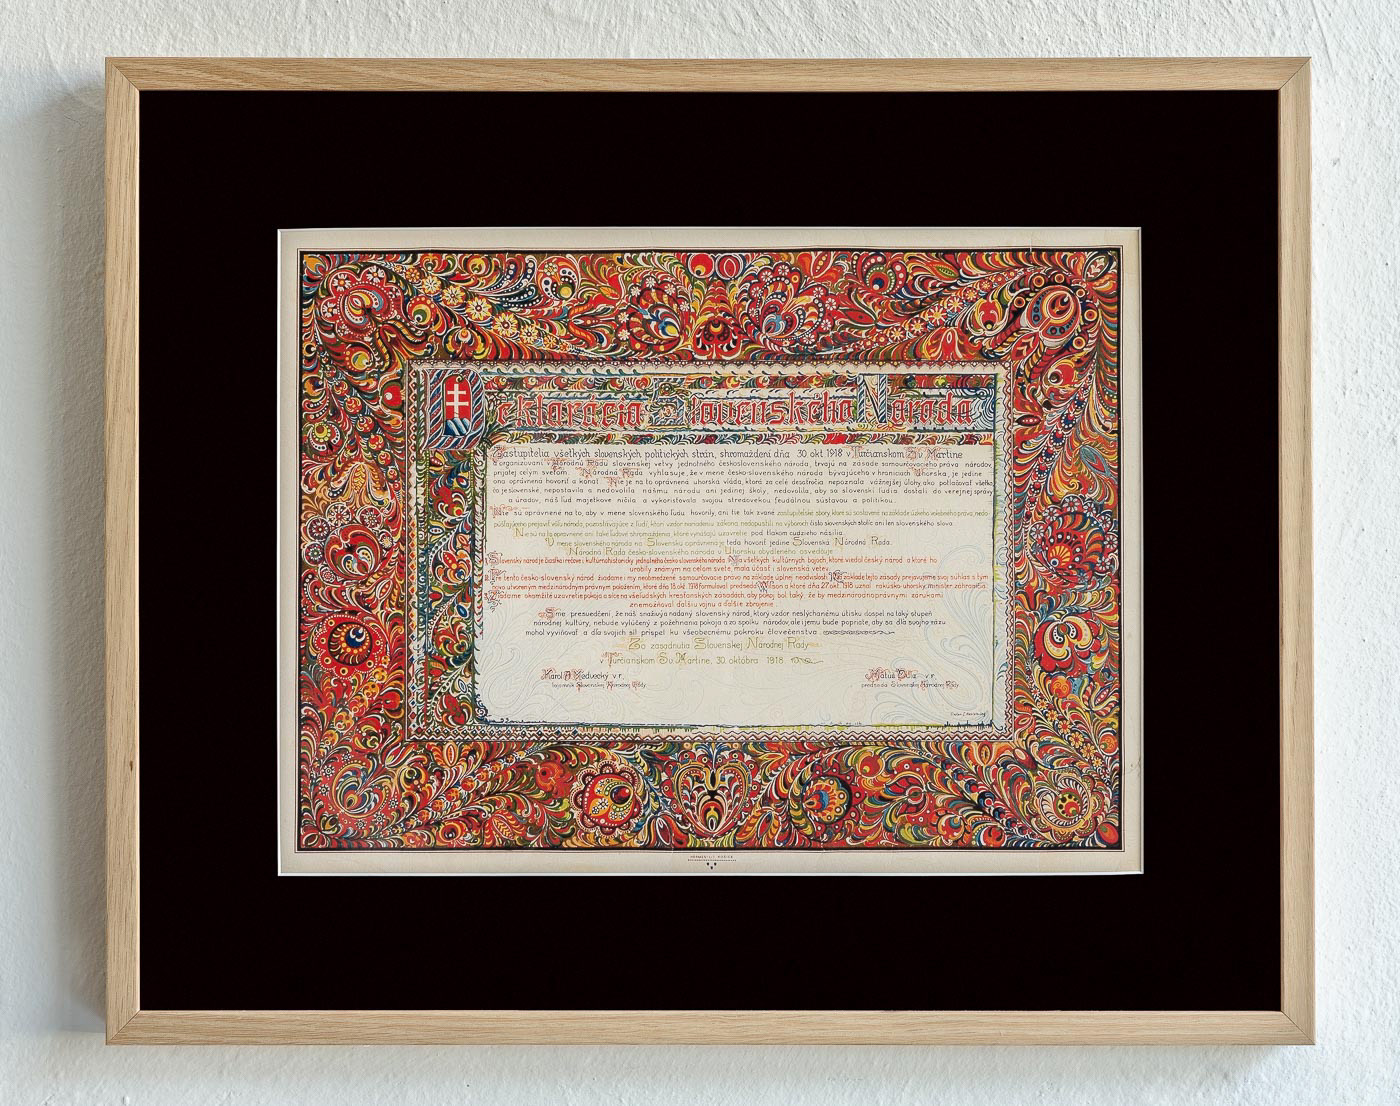 Deklarácia Slovenského Národa
Zástupitelia všetkých slovenských politických strán, shromaždení dňa 30. okt. 1918 v Turčianskom Sv. Martine
a organizovaní v Národnú Radu slovenskej vetvy jednotného československého národa, trvajú na zásade samourčovacieho práva národov,
prijatej celým svetom. Národná Rada vyhlasuje, že v mene česko-slovenského národa bývajúceho v hraniciach Uhorska, je jedine
ona oprávnená hovoriť a konať. Nie je na to oprávnená uhorská vláda, ktorá za celé desaťročia nepoznala vážnejšej úlohy, ako potlačovať všetko,
čo je slovenské, nepostavila a nedovolila nášmu národu ani jedinej školy, nedovolila, aby sa slovenskí ľudia dostali do verejnej správy
a úradov, náš ľud majetkove ničila a vykorisťovala svojou stredovekou feudálnou sústavou a politikou.
Nie sú oprávnené na to, aby v mene slovenského ľudu hovorily, ani tie tak zvané zastupiteľské sbory, ktoré sú sostavené na základe úzkeho volebného práva, nedo-
púšťajúceho prejaviť vôľu národa, pozostávajúce z ľudí, ktorí vzdor nariadeniu zákona nedopustili na výboroch číslo slovenských stolíc ani len slovenského slova.
Nie sú na to oprávnené ani také ľudové shromaždenia, ktoré vynášajú uzavretie pod tlakom cudzieho násilia.
V mene slovenského národa na Slovensku oprávnená je teda hovoriť jedine Slovenská Národná Rada.
Národná Rada česko-slovenského národa v Uhorsku obydleného osvedčuje
Slovenský národ je čiastka i rečove i kultúrno-historicky jednotného česko-slovenského národa. Na všetkých kultúrnych bojoch, ktoré viedol český národ a ktoré ho
urobily známym na celom svete, mala účasť i slovenská vetev.
Pre tento česko-slovenský národ žiadame i my neobmedzené samourčovacie právo na základe úplnej neodvislosti. Na základe tejto zásady prejavujeme svoj súhlas s tým
novo utvoreným medzinárodným právnym položením, ktoré dňa 18. okt. 1918 formuloval predseda Wilson a ktoré dňa 27. okt. 1918 uznal rakúsko-uhorský minister zahraničia.
Žiadame okamžité uzavretie pokoja a síce na všeľudských kresťanských zásadách, aby pokoj bol taký, že by medzinárodnoprávnymi zárukami
znemožňoval ďalšiu vojnu a ďalšie zbrojenie.
Sme presvedčení, že náš snaživý a nadaný slovenský národ, ktorý vzdor neslýchanému útisku dospel na taký stupeň
národnej kultúry, nebude vylúčený z požehnania pokoja a zo spolku národov, ale i jemu bude popriate, aby sa dľa svojho rázu
mohol vyvinovať a dľa svojich síl prispel ku všeobecnému pokroku človečenstva.
Zo zasadnutia Slovenskej Národnej Rady
v Turčianskom Sv. Martine, 30. októbra 1918.
Karol A. Medvecký v. r.
Matúš Dula v. r.
tajomník Slovenskej Národnej Rady
predseda Slovenskej Národnej Rady